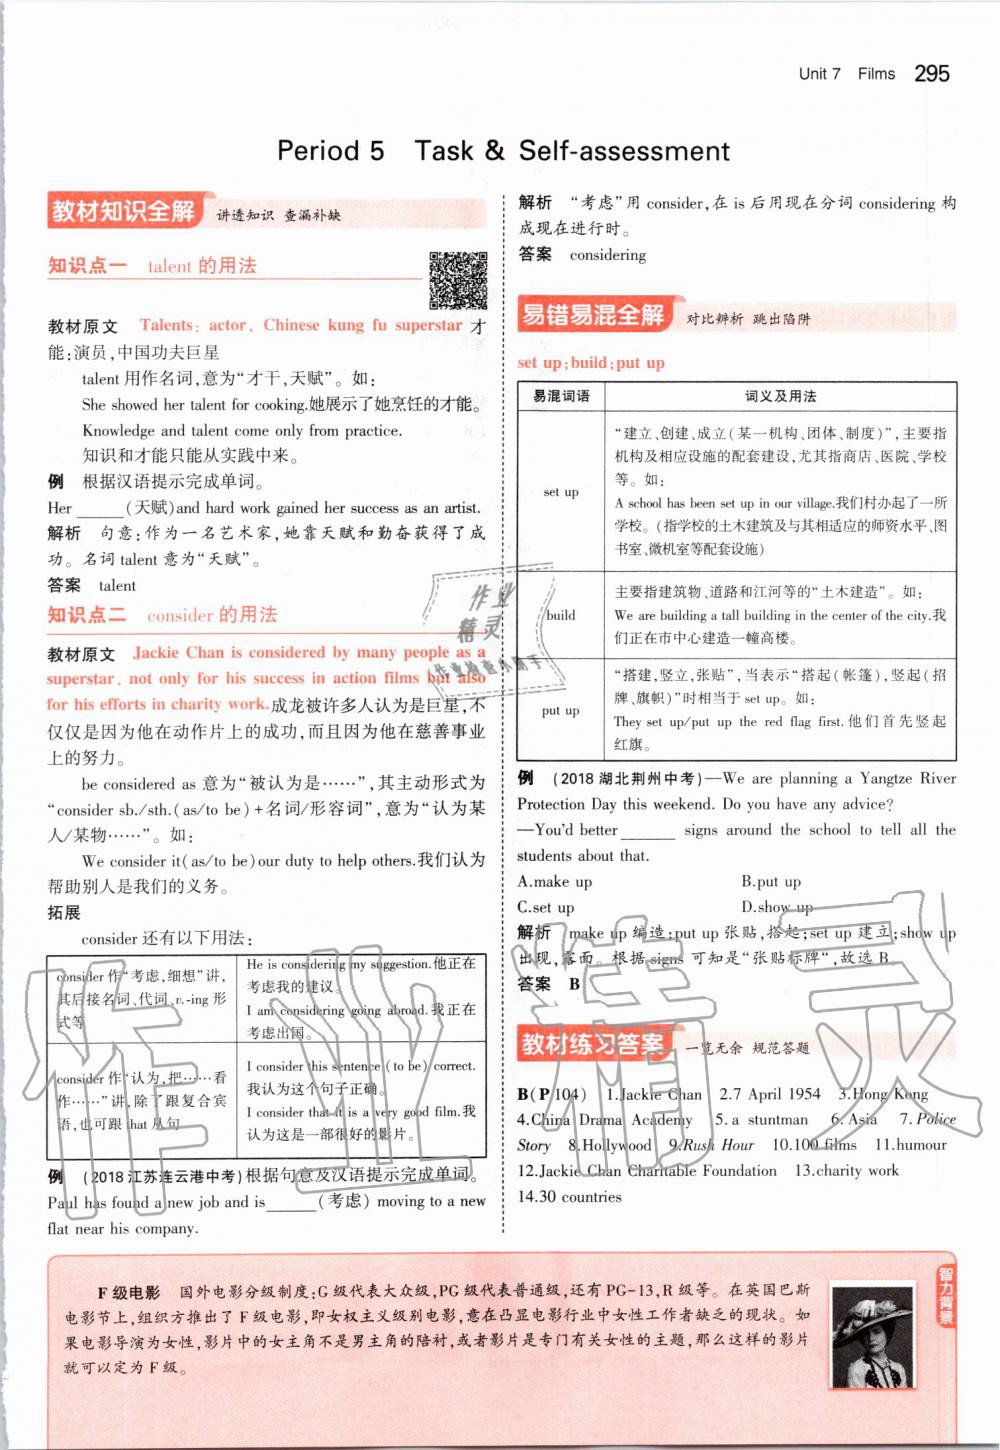 Unit 7 Films 295
Period 5 Task & Self-assessment
教材知识全解 讲透知识 查漏补缺
知识点一 talent 的用法
教材原文 Talents: actor, Chinese kung fu superstar 才
能:演员,中国功夫巨星
talent 用作名词,意为“才干,天赋”。如:
She showed her talent for cooking.她展示了她烹饪的才能。
Knowledge and talent come only from practice.
知识和才能只能从实践中来。
例 根据汉语提示完成单词。
Her ______ (天赋)and hard work gained her success as an artist.
解析 句意:作为一名艺术家,她靠天赋和勤奋获得了成
功。名词 talent 意为“天赋”。
答案 talent
知识点二 consider 的用法
教材原文 Jackie Chan is considered by many people as a
superstar, not only for his success in action films but also
for his efforts in charity work.成龙被许多人认为是巨星,不
仅仅是因为他在动作片上的成功,而且因为他在慈善事业
上的努力。
be considered as 意为“被认为是……”,其主动形式为
“consider sb./sth.(as/to be)+名词/形容词”,意为“认为某
人/某物……”。如:
We consider it(as/to be)our duty to help others.我们认为
帮助别人是我们的义务。
拓展
consider 还有以下用法:
consider 作“考虑,细想”讲,
其后接名词、代词、v.-ing 形
式等
He is considering my suggestion.他正在
考虑我的建议。
I am considering going abroad.我正在
考虑出国。
consider 作“认为,把……看
作……”讲,除了跟复合宾
语,也可跟 that 从句
I consider this sentence (to be) correct.
我认为这个句子正确。
I consider that it is a very good film.我
认为这是一部很好的影片。
例 (2018 江苏连云港中考)根据句意及汉语提示完成单词。
Paul has found a new job and is______(考虑) moving to a new
flat near his company.
解析 “考虑”用 consider,在 is 后用现在分词 considering 构
成现在进行时。
答案 considering
易错易混全解 对比辨析 跳出陷阱
set up;build;put up
易混词语 词义及用法
set up
“建立、创建、成立(某一机构、团体、制度)”,主要指
机构及相应设施的配套建设,尤其指商店、医院、学校
等。如:
A school has been set up in our village.我们村办起了一所
学校。(指学校的土木建筑及与其相适应的师资水平、图
书室、微机室等配套设施)
build
主要指建筑物、道路和江河等的“土木建造”。如:
We are building a tall building in the center of the city.我
们正在市中心建造一幢高楼。
put up
“搭建,竖立,张贴”,当表示“搭起(帐篷),竖起(招
牌、旗帜)”时相当于 set up。如:
They set up/put up the red flag first.他们首先竖起
红旗。
例 (2018 湖北荆州中考)—We are planning a Yangtze River
Protection Day this weekend. Do you have any advice?
—You'd better ______ signs around the school to tell all the
students about that.
A.make up B.put up
C.set up D.show up
解析 make up 编造;put up 张贴,搭起;set up 建立;show up
出现,露面。根据 signs 可知是“张贴标牌”,故选 B。
答案 B
教材练习答案 一览无余 规范答题
B(P104) 1.Jackie Chan 2.7 April 1954 3.Hong Kong
4.China Drama Academy 5.a stuntman 6.Asia 7.Police
Story 8.Hollywood 9.Rush Hour 10.100 films 11.humour
12.Jackie Chan Charitable Foundation 13.charity work
14.30 countries
作业
精灵
作业检查小助手
作业精灵
F 级电影 国外电影分级制度:G 级代表大众级,PG 级代表普通级,还有 PG-13,R 级等。在英国巴斯
电影节上,组织方推出了 F 级电影,即女权主义级别电影,意在凸显电影行业中女性工作者缺乏的现状。如
果电影导演为女性,影片中的女主角不是男主角的陪衬,或者影片是专门有关女性的主题,那么这样的影片
就可以定为 F 级。
智力背景